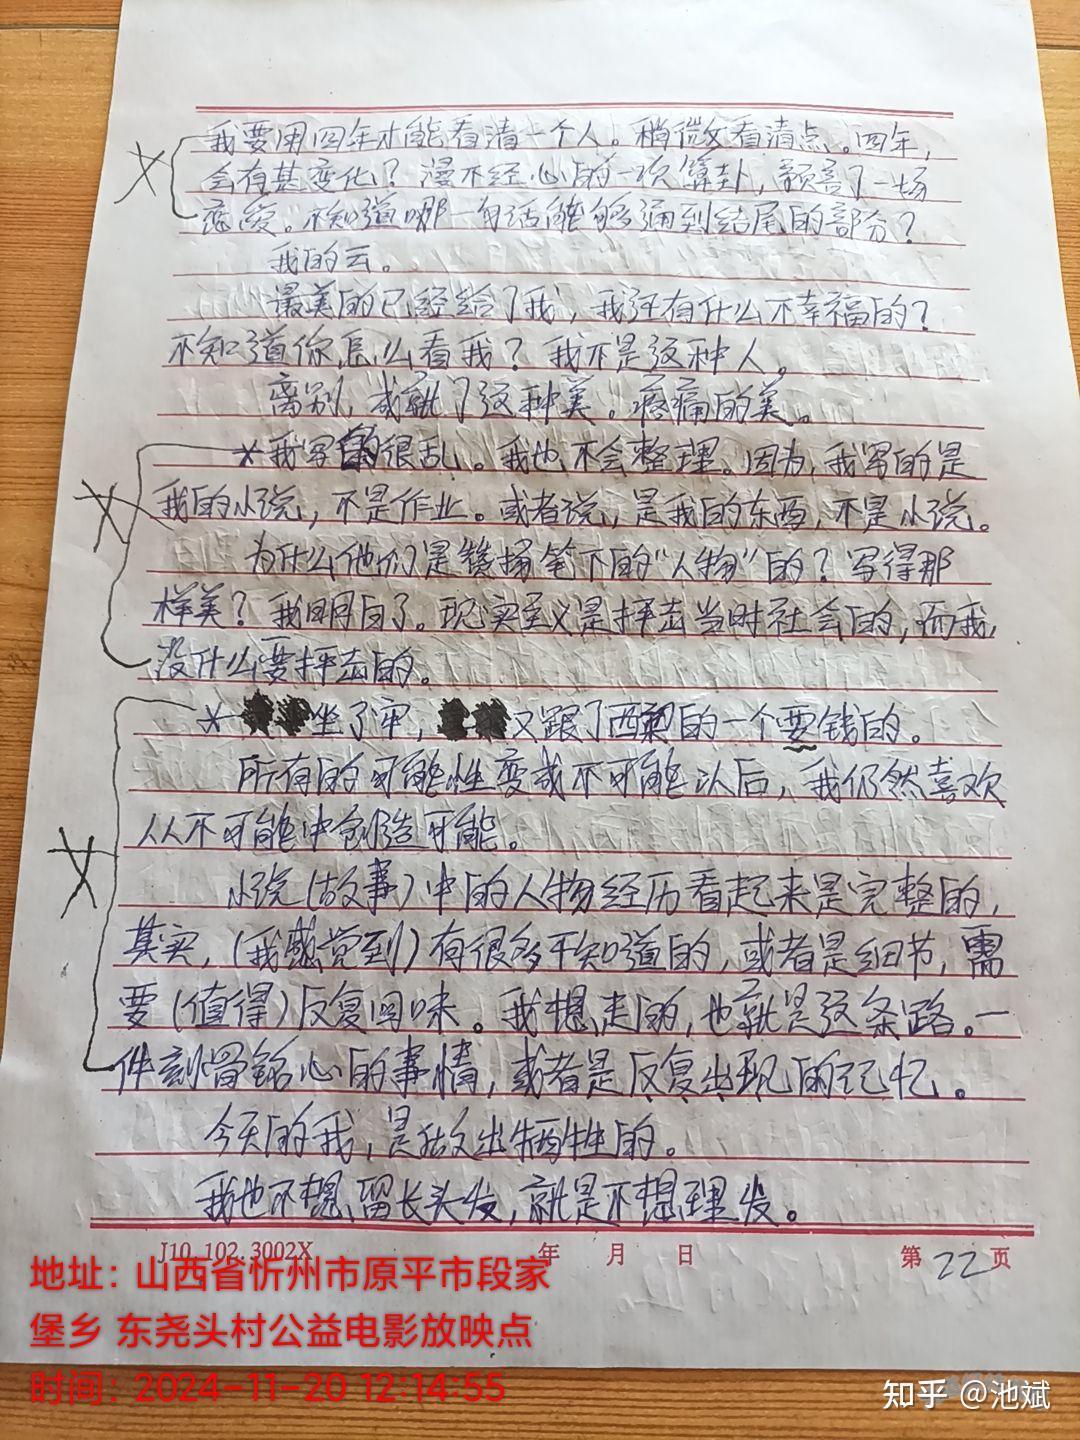 我要用四年才能看清一个人。稍微又看清点。四年,
会有甚变化?漫不经心的一次算卦,预言了一场
恋爱。不知道哪一句话能够通到结尾的部分?
我的云。
最美的已经给了我,我还有什么不幸福的?
不知道你怎么看我?我不是这种人。
离别,成就了这种美。疼痛的美。
*我写的很乱。我也不会整理。因为,我写的是
我的小说,不是作业。或者说,是我的东西,不是小说。
为什么他们是赞扬笔下的“人物”的?写得那
样美?我明白了。现实主义是抨击当时社会的,而我,
没什么要抨击的。
*坐了牢,又跟了西梁的一个要钱的。
所有的可能性变成不可能以后,我仍然喜欢
从不可能中创造可能。
小说(故事)中的人物经历看起来是完整的,
其实,(我感觉到)有很多不知道的,或者是细节,需
要(值得)反复回味。我想走的,也就是这条路。一
件刻骨铭心的事情,或者是反复出现的记忆。
今天的我,是做出牺牲的。
我也不想留长头发,就是不想理发。
J10.102.3002X 年 月 日 第22页
地址:山西省忻州市原平市段家
堡乡 东尧头村公益电影放映点
时间:2024-11-20 12:14:55
知乎 @池斌